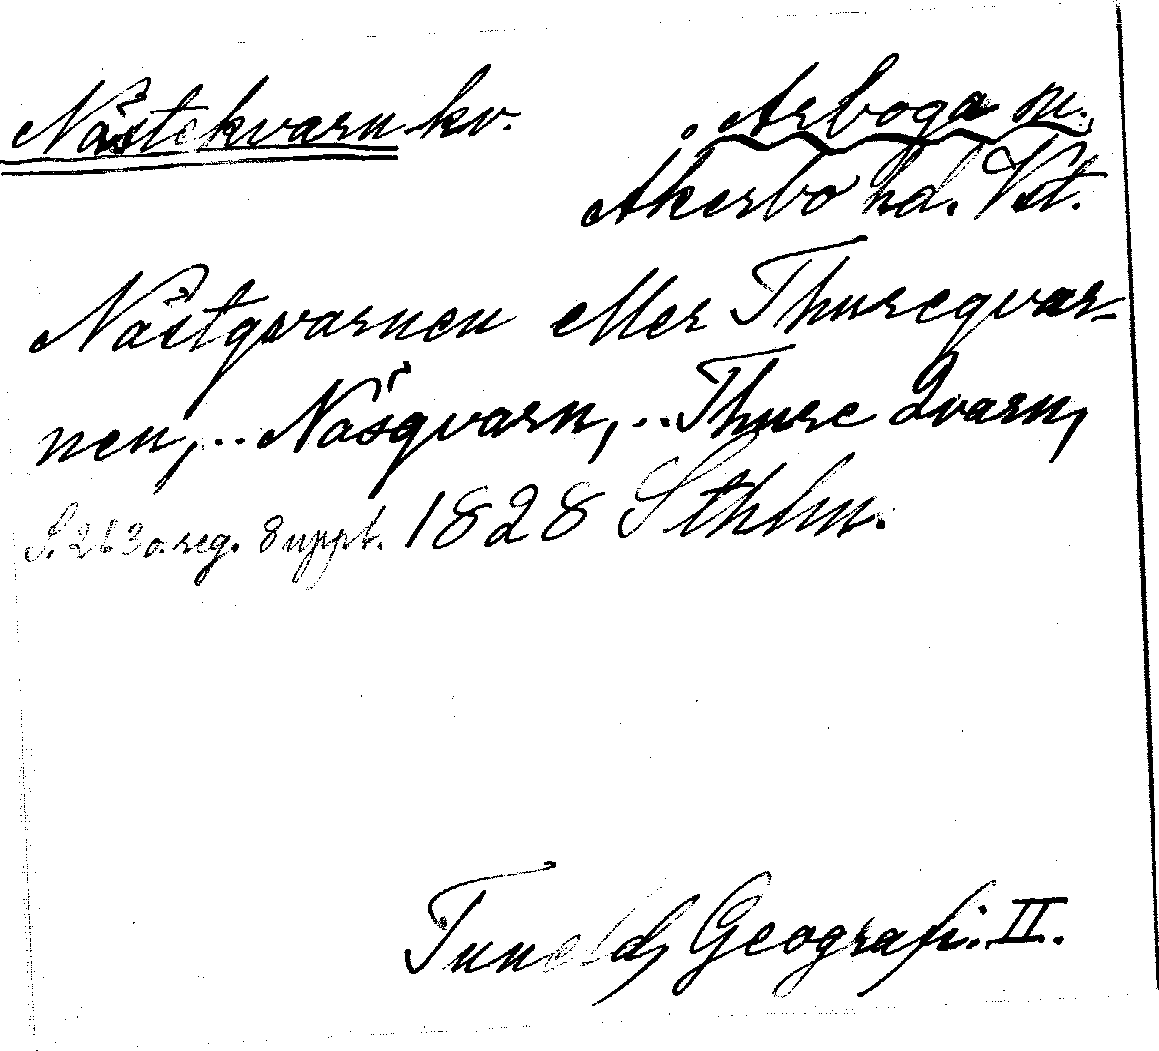 Nästekvarn kv. Arboga m.
Åkerbo hd. Vst.
Nästqvarnen eller Thureqvar-
nen,.. Näsqvarn,.. Thure Qvarn,
S. 263 o. reg. 8 uppl. 1828 Sthlm.
Tunelds Geografi. II.